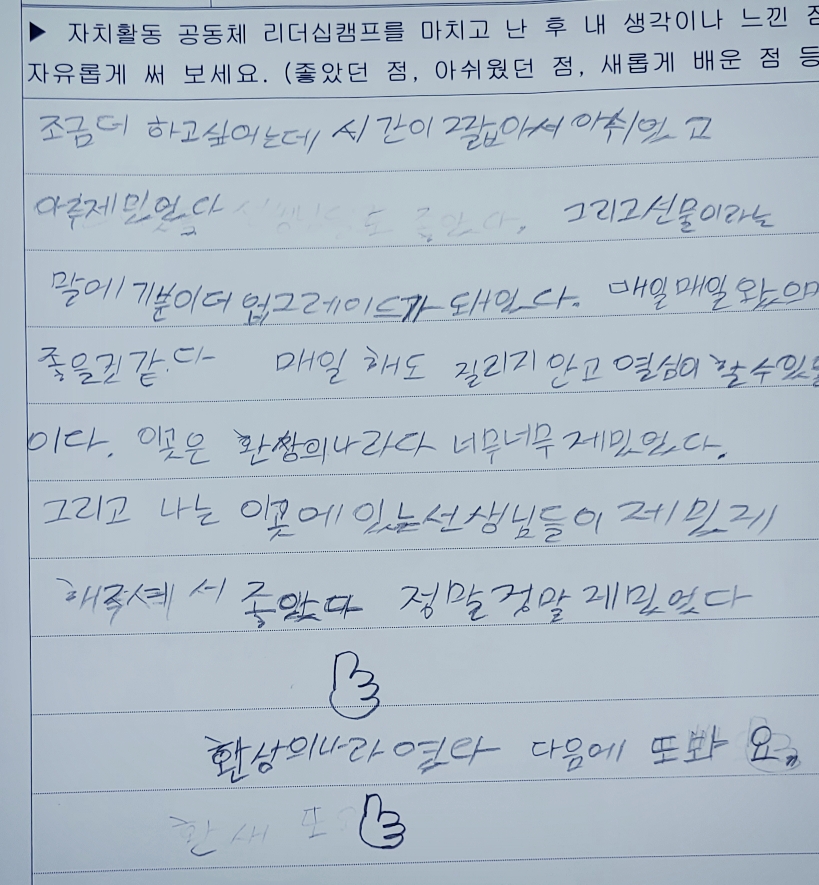 ▶ 자치활동 공동체 리더십캠프를 마치고 난 후 내 생각이나 느낀 점
자유롭게 써 보세요. (좋았던 점, 아쉬웠던 점, 새롭게 배운 점 등
조금더 하고싶어는데 시간이 짧아서 아쉬었고
아주제밌었다 선생님도 좋았다. 그리고선물이라는
말에 기분이더 업그레이드가 돼었다. 매일매일 왔으며
좋을것 같다 매일 해도 질리지 안고 열심이 할수있
이다. 이곳은 환상의나라다 너무너무 제밌었다.
그리고 나는 이곳에 있는선생님들이 제밌게
해주셰서 좋았다 정말정말 제밌었다
환상의나라 였다 다음에 또봐요.
환 새 또